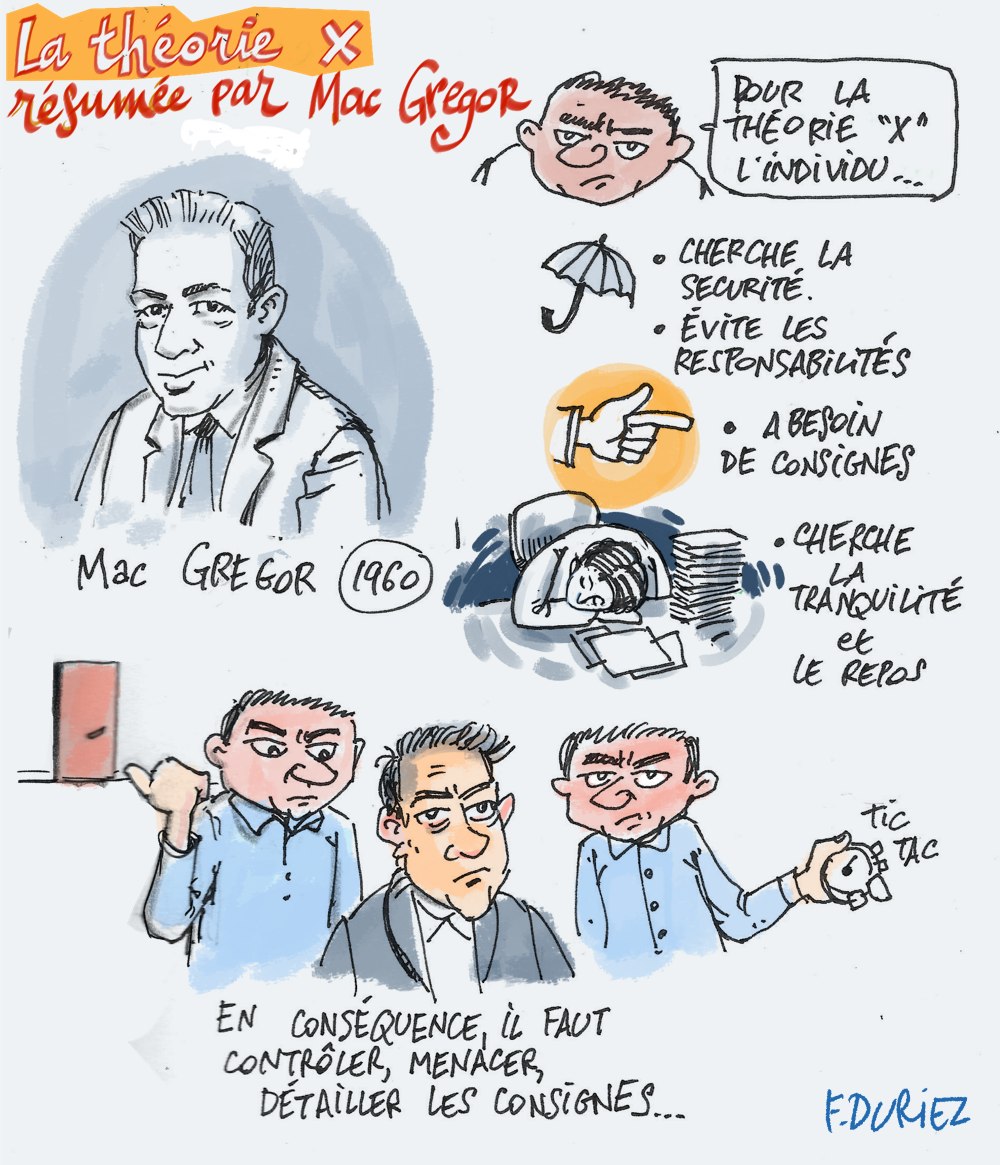 La théorie X
résumée par Mac Gregor
POUR LA
THÉORIE "X"
L'INDIVIDU...
• CHERCHE LA
SECURITÉ.
• ÉVITE LES
RESPONSABILITÉS
• A BESOIN
DE CONSIGNES
• CHERCHE
LA
TRANQUILITÉ
et
LE REPOS
MAC GREGOR 1960
TIC
TAC
EN CONSÉQUENCE, IL FAUT
CONTRÔLER, MENACER,
DÉTAILLER LES CONSIGNES...
F.DURIEZ